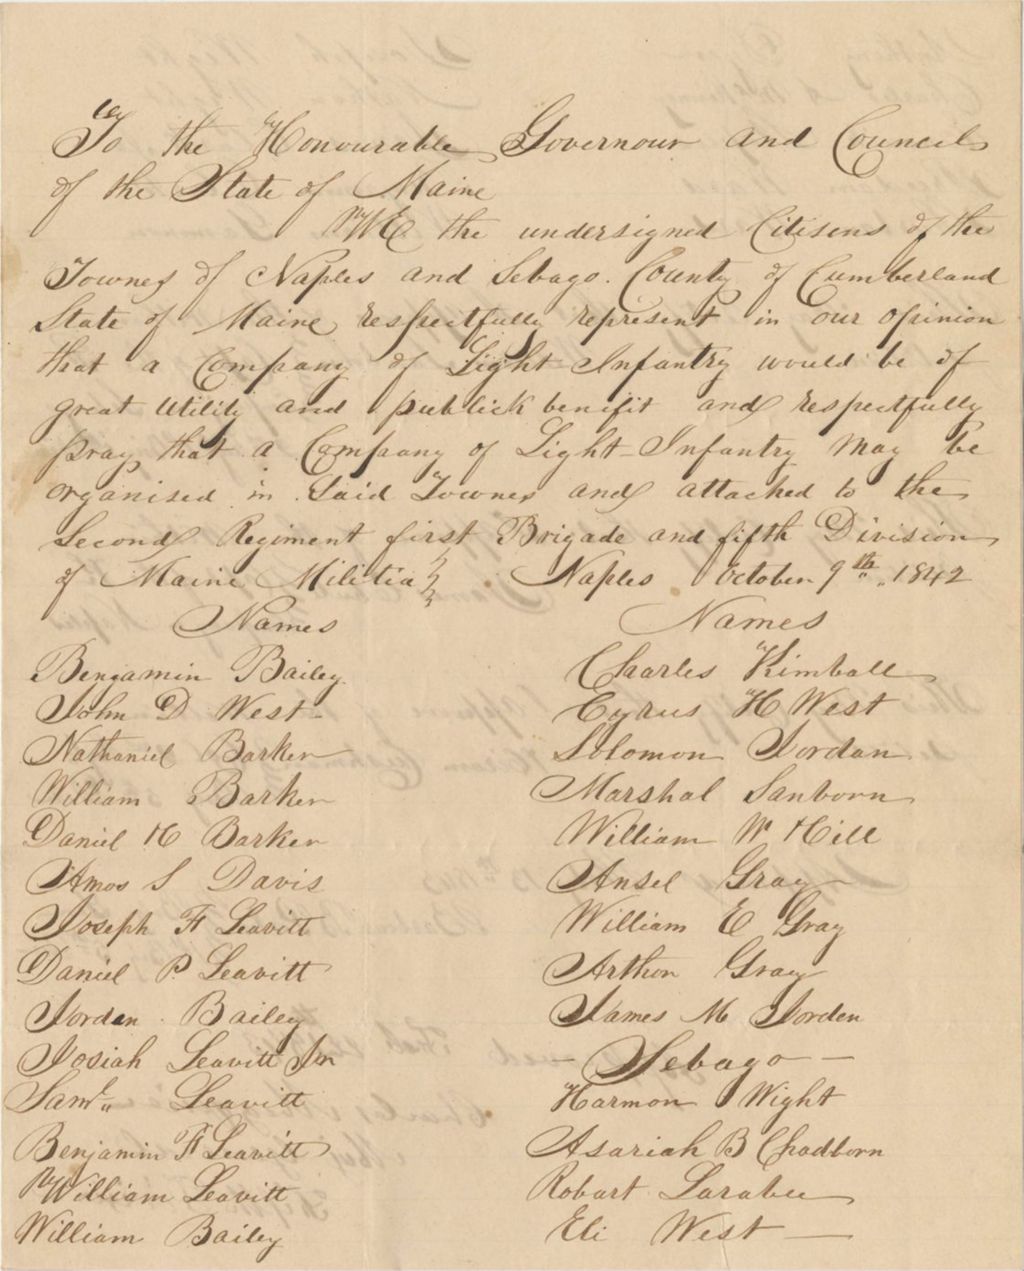 To the Honourable Governour and Council
of the State of Maine
WE the undersigned Citisens of the
Townes of Naples and Sebago. County of Cumberland
State of Maine respectfully represent in our opinion
that a Company of Light Infantry would be of
great utility and publick benifit and respectfully
pray that a Company of Light-Infantry may be
organised in Said Townes and attached to the
Second Regiment first Brigade and fifth Division
of Maine Militia Naples October 9th 1842
Names Names
Benjamin Bailey Charles Kimball
John D West Cyrus H West
Nathaniel Barker Solomon Jordan
William Barker Marshal Sanborn
Daniel H Barker William W Hill
Amos S Davis Ansel Gray
Joseph F Leavitt William E Gray
Daniel P. Leavitt Arthor Gray
Jordan Bailey James M Jorden
Josiah Leavitt Jnr — Sebago —
Saml Leavitt Harmon Wight
Benjamin F Leavitt Asariah B Chadborn
William Leavitt Robart Larabee
William Bailey Eli West —